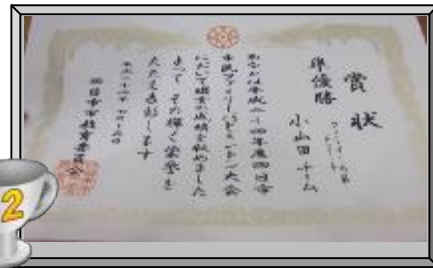 賞状
準優勝
小山田チーム
あなたは平成二十四年度四日市
市民ファミリーバドミントン大会
において頭書の成績を収めました
よって その輝く栄誉を
たたえ表彰します
平成二十四年七月
四日市市教育委員会
2